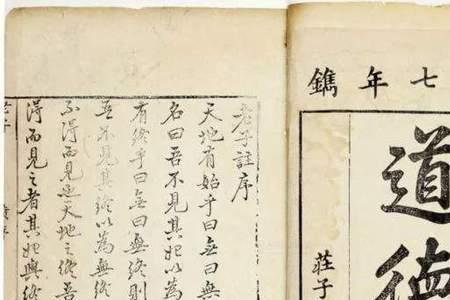 七年鐫
道德
莊子
老子註序
天地有始乎曰無曰無
名曰吾不見其始以為
有終乎曰無曰無終則
吾不見其終以為無終
不得而見也天地之終吾
得而見之者其始與終